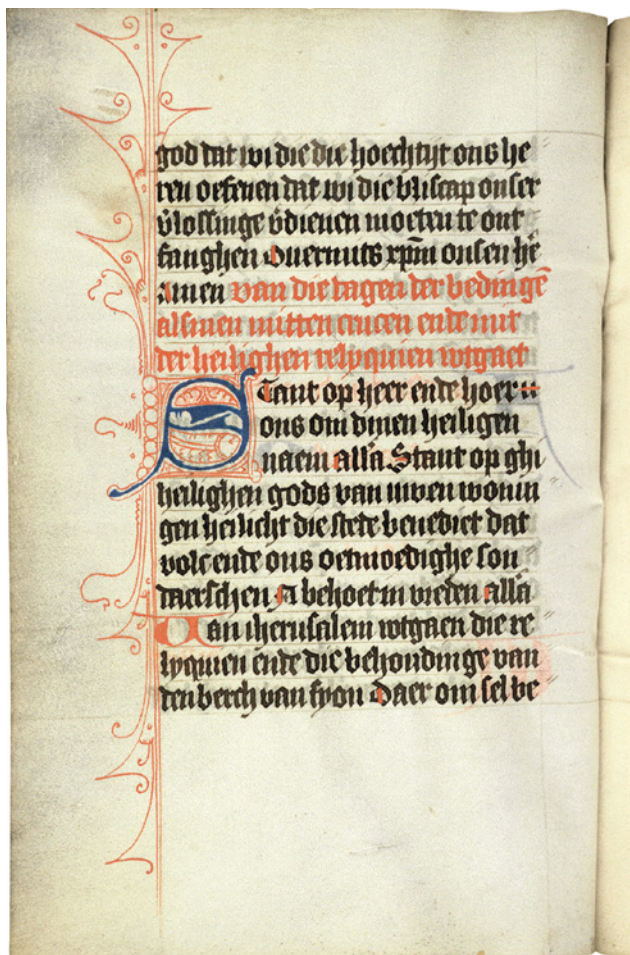 god dat wi die die hoechtijt ons he
ren oefenen dat wi die bliscap onser
v̄lossinge v̄dienen moeten te ont
fanghen Ouermits xpm̄ onsen hē
Amen van die dagen der bedingē
alsmen mitten crucen ende mit
der heilighen relyquien wtgaet
Staut op heer ende hoer
ons om dinen heiligen
naem all'a Staut op ghi
heilighen gods van uwen wonin
gen heilicht die stete benedict dat
volc ende ons oetmoedighe son
daerschen A behoet in vreden all'a
Uan iherusalem wtgaen die re
lyquien ende die behoudinge van
den berch van syon Daer om sel be